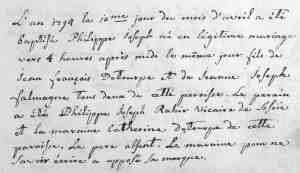 L'an 1794 le 10me jour du mois d'avril a été
baptisé Philippe Joseph né en légitime mariage
vers 4 heures après midi le même jour fils de
Jean François Delouxpe et de Jeanne Joseph
tous deux de cette paroisse. Le parain
a été Philippe Joseph Vicaire de
et la maraine Catherine de cette
paroisse. Le pere absent. La maraine pour ne
savoir écrire a apposé sa marque.